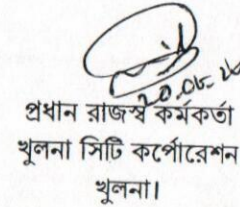 20.05.26
প্রধান রাজস্ব কর্মকর্তা
খুলনা সিটি কর্পোরেশন
খুলনা।